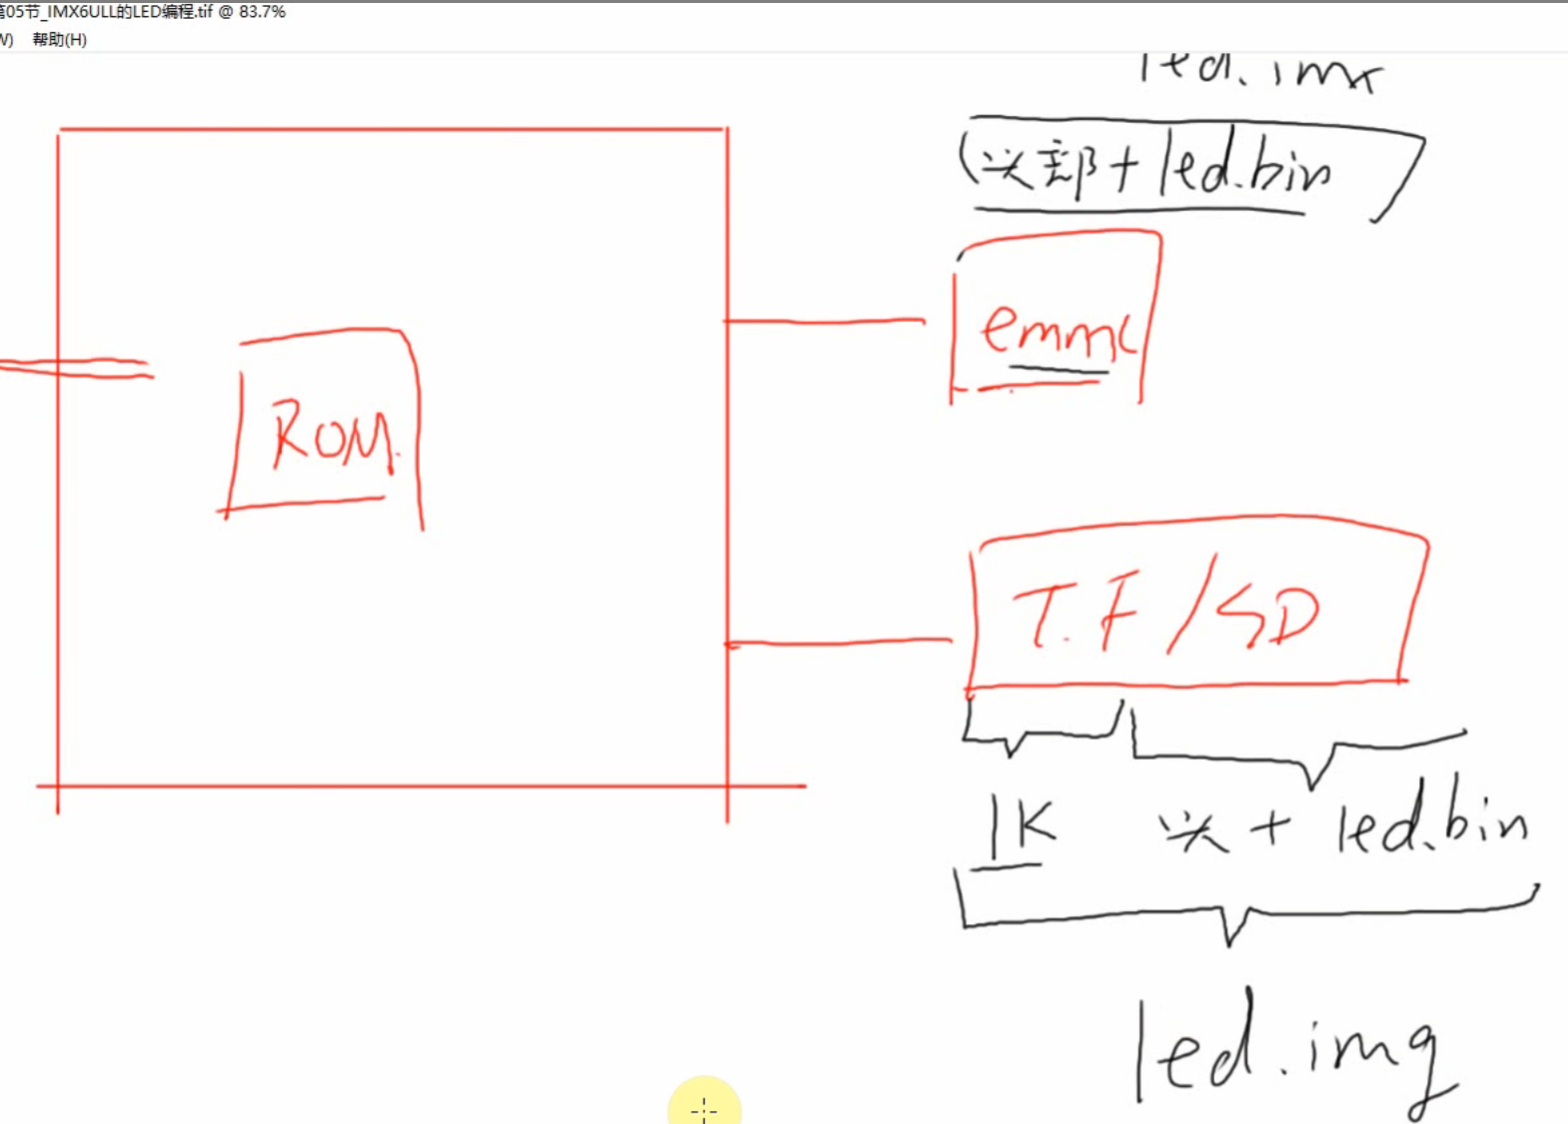 第05节_IMX6ULL的LED编程.tif @ 83.7%
W) 帮助(H)
led.imx
(头部+led.bin
emmc
ROM
T.F/SD
1K 头+led.bin
led.img